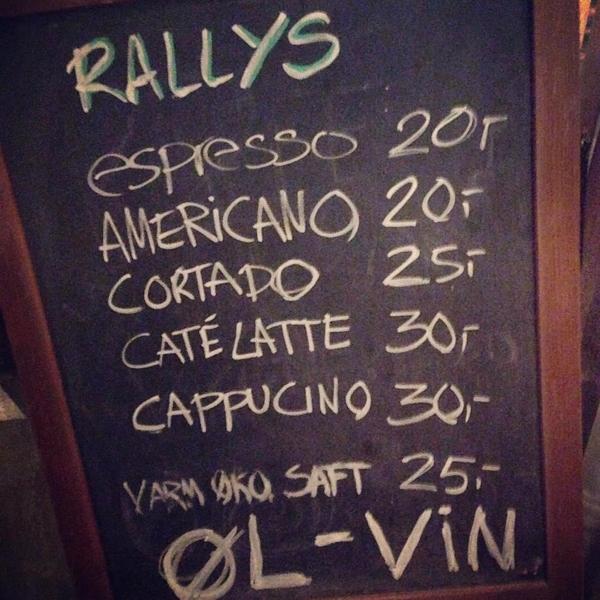 RALLYS
espresso 20,-
AMERICANO 20,-
CORTADO 25,-
CATÉ LATTE 30,-
CAPPUCINO 30,-
VARM ØKO. SAFT 25,-
ØL - ViN